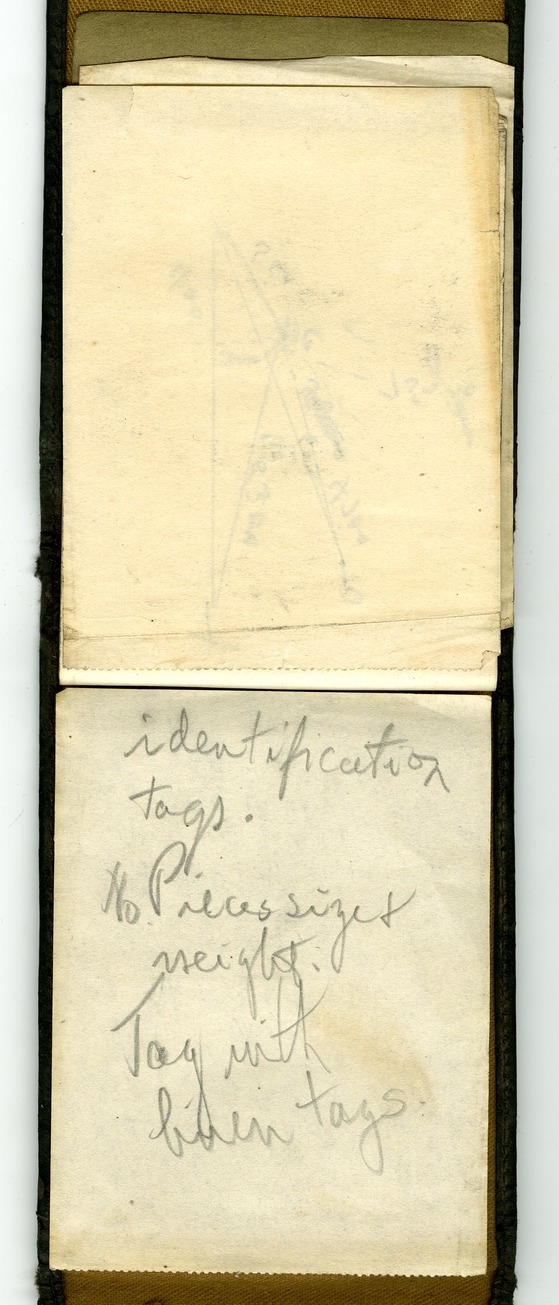 identification
tags.
No. Pieces size &
weight.
Tag with
linen tags.